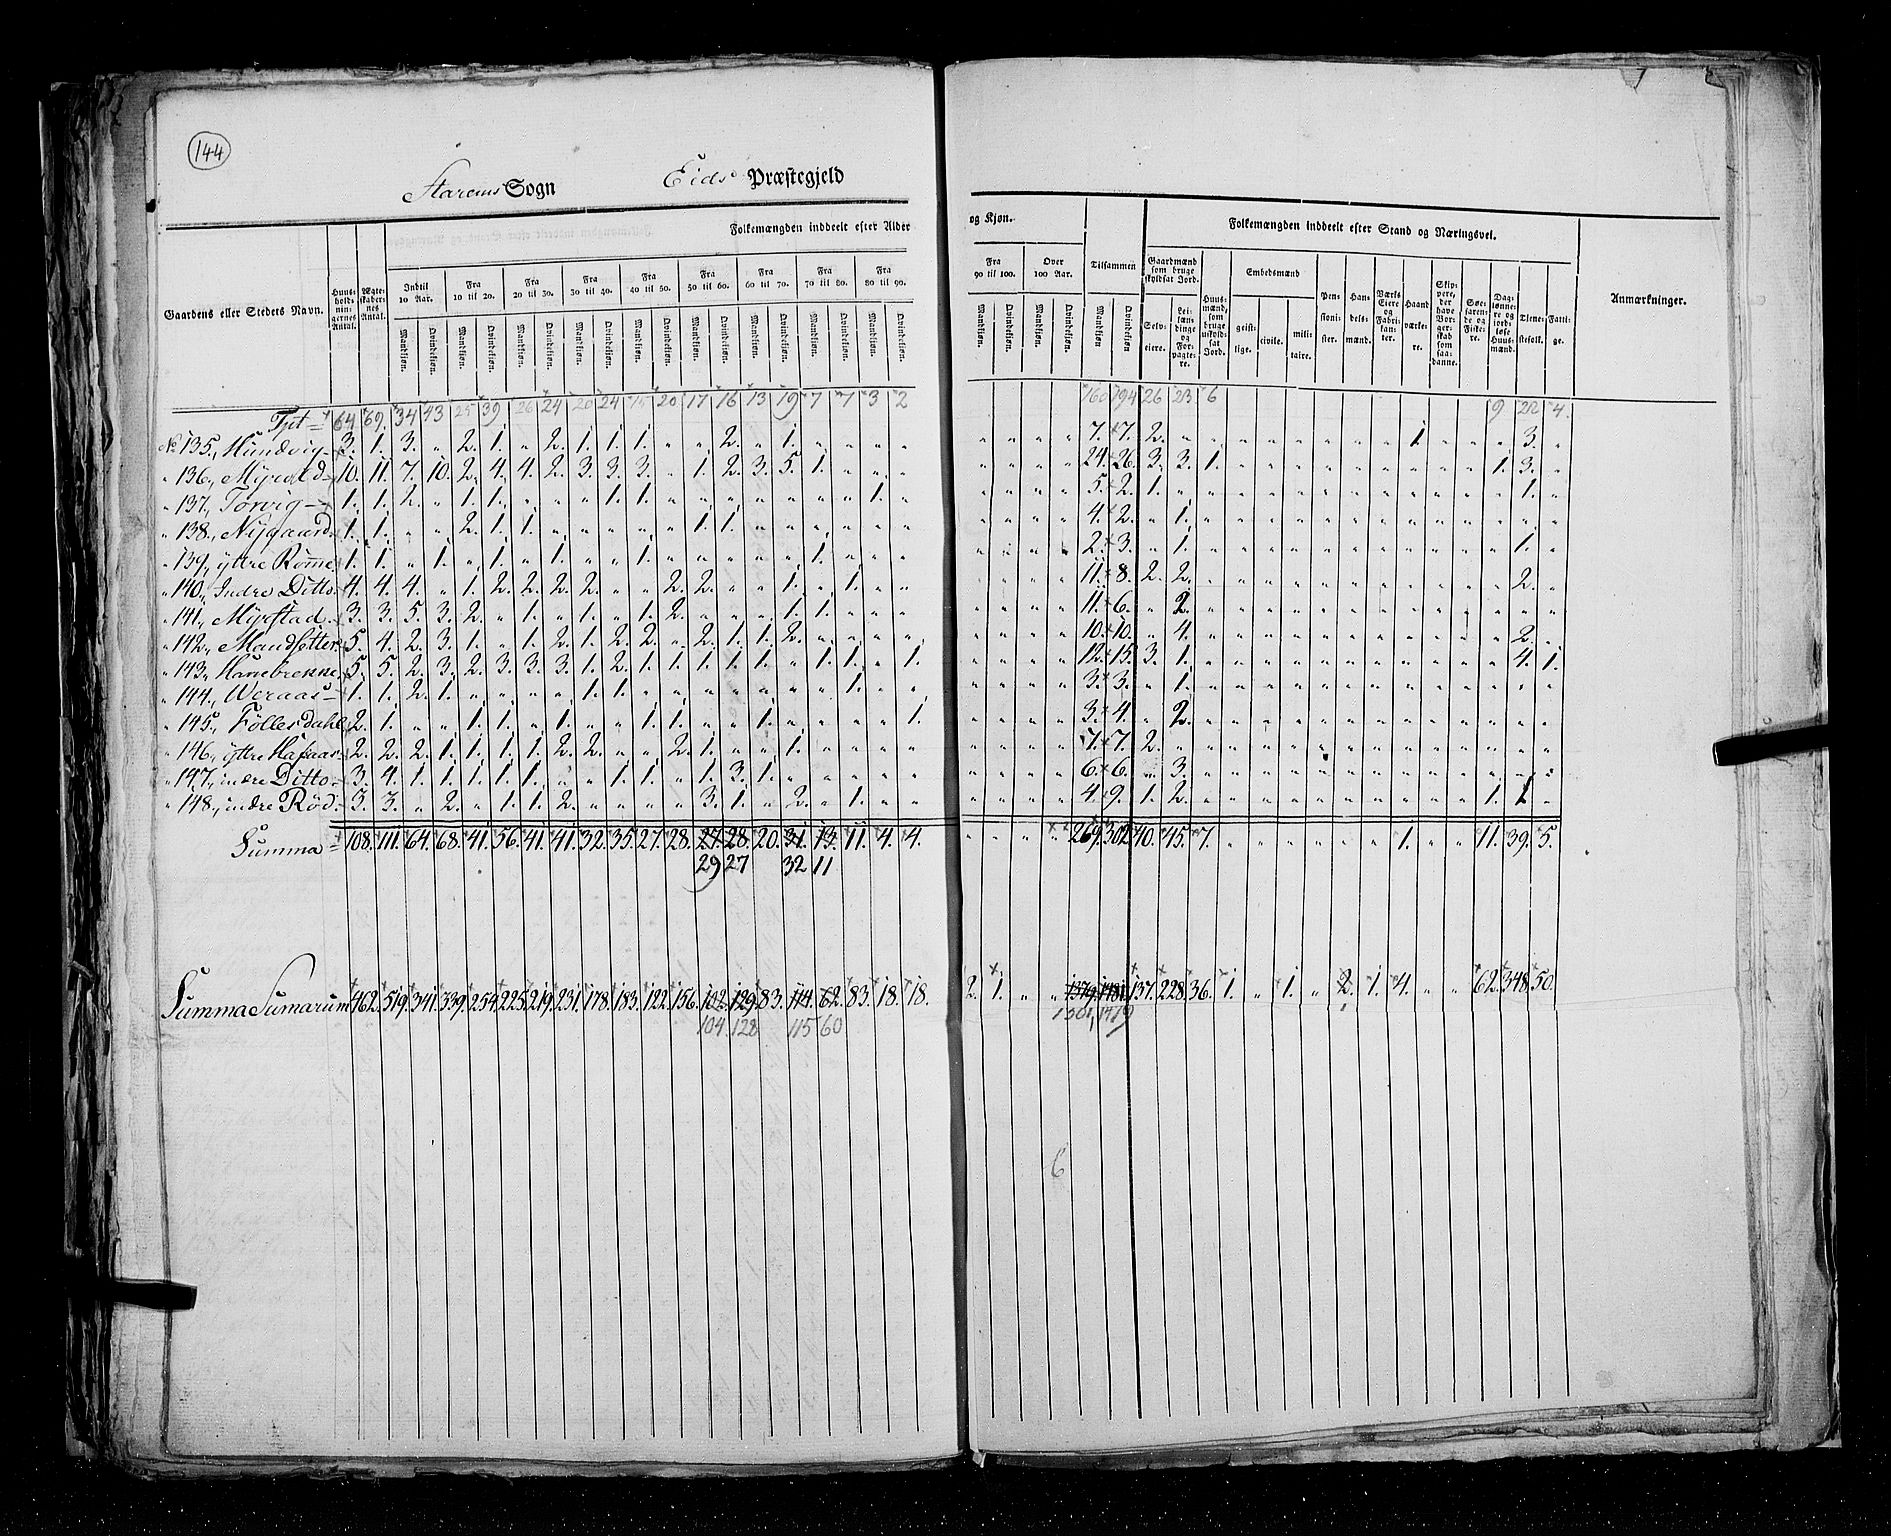 144
Sogn Eids Præstegjeld
Gaardens eller Stedets Navn. Huus-holdnin-gernes Antal. Ægte-skaber-nes Antal. Folkemængden inddeelt efter Alder og Kjøn. Tilsammen Folkemængden inddeelt efter Stand og Næringsvei. Anmærkninger.
Indtil 10 Aar. Fra 10 til 20. Fra 20 til 30. Fra 30 til 40. Fra 40 til 50. Fra 50 til 60. Fra 60 til 70. Fra 70 til 80. Fra 80 til 90. Fra 90 til 100. Over 100 Aar.
Gaardmænd som bruge skyldsat Jord. Huus-mænd, som bruge uskyld-sat Jord. Embedsmænd Pen-sioni-ster. Han-dels-mænd. Værks Eiere og Fabri-kan-ter. Haand værke-re. Skip-pere, der have Bor-ger-skab som saa-danne. Søe-faren-de og Fiske-re. Dag-lønne-re og jord-løse Huus-mænd. Tiene-stefolk. Fatti-ge.
Mandkjøn. Qvindekjøn. Mandkjøn. Qvindekjøn. Mandkjøn. Qvindekjøn. Mandkjøn. Qvindekjøn. Mandkjøn. Qvindekjøn. Mandkjøn. Qvindekjøn. Mandkjøn. Qvindekjøn. Mandkjøn. Qvindekjøn. Mandkjøn. Qvindekjøn. Mandkjøn. Qvindekjøn. Mandkjøn. Qvindekjøn. Mandkjøn Qvindekjøn Selv-eiere. Lei-læn-dinge og For-pagte-re. geist-lige. civile. mili-taire.
64 69. 34 43 25 39 26 24 20 24 15 20 17 16 13 19 7 7 3 2 160 194 26 23 6 9 22 4.
No 135., Hundvig 3. 1. 3. „ 2. 1. „ 2. 1. 1. 1. „ „ 2. „ 1. „ „ „ „ „ „ „ „ 7. 7. 2. „ „ „ „ „ „ „ „ 1. „ „ „ 3. „
„ 136., Myrold 10. 11. 7. 10. 2. 4. 4. 2. 3. 3. 3. „ 1. 2. 3. 5. 1. „ „ „ „ „ „ „ 24. 26. 3. 3. 1. „ „ „ „ „ „ „ „ „ 1. 3. „
„ 137., Torvig 1. 1. 2. „ 1. 1. „ „ „ 1. 1. „ „ „ „ „ „ „ 1. „ „ „ „ „ 5. 2. 1. „ „ „ „ „ „ „ „ „ „ „ „ 1. „
„ 138., Nygaard 1. 1. „ „ 2. 1. 1. „ „ „ „ „ 1. 1. „ „ „ „ „ „ „ „ „ „ 4. 2. „ 1. „ „ „ „ „ „ „ „ „ „ „ „ „
„ 139., yttre Rømme 1. 1. „ 1. „ 1. „ 1. „ „ 1. „ „ „ „ „ 1. „ „ „ „ „ „ „ 2. 3. „ 1. „ „ „ „ „ „ „ „ „ „ „ 1. „
„ 140., Indre Ditto 4. 4. 4. „ 1. 2. 2. 2. 2. „ „ 2. 2. „ „ 1. „ 1. „ „ „ „ „ „ 11. 8. 2. 2. „ „ „ „ „ „ „ „ „ „ „ 2. „
„ 141., Myrstad 3. 3. 5. 3. 2. „ 1. „ 1. „ 1. 2. „ „ „ 1. 1. „ „ „ „ „ „ „ 11. 6. „ 2. „ „ „ „ „ „ „ „ „ „ „ „ „
„ 142., Maudsetter 5. 4. 2. 3. 1. „ 1. 2. 1. 2. 2. „ 2. 1. 1. 2. „ „ „ „ „ „ „ „ 10. 10. „ 4. „ „ „ „ „ „ „ „ „ „ „ 2. „
„ 143., Hanebrekke 5. 5. 2. 3. 2. 3. 3. 3. 1. 2. 1. 1. 1. 1. 1. „ 1. 1. „ 1. „ „ „ „ 12. 15. 3. 1. „ „ „ „ „ „ „ „ „ „ „ 4. 1.
„ 144., Weraas 1. 1. 2. 1. „ „ „ „ 1. 1. „ „ „ „ „ „ „ 1. „ „ „ „ „ „ 3. 3. „ 1. „ „ „ „ „ „ „ „ „ „ „ „ „
„ 145., Føllesdahl 2. 1. „ „ 1. 1. „ 1. „ „ 1. 1. „ „ 1. „ „ „ „ 1. „ „ „ „ 3. 4. „ 2. „ „ „ „ „ „ „ „ „ „ „ „ „
„ 146., yttre Hafaas 2. 2. 2. 1. 1. 1. 1. 2. 2. „ „ 2. 1. „ „ 1. „ „ „ „ „ „ „ „ 7. 7. 2. „ „ „ „ „ „ „ „ „ „ „ „ „ „
„ 147., indre Ditto 3. 4. 1. 1. 1. 1. 1. „ „ 1. 1. „ 1. 3. 1. „ „ „ „ „ „ „ „ „ 6. 6. „ 3. „ „ „ „ „ „ „ „ „ „ „ „ „
„ 148., indre Rød 3. 3. „ 2. „ 1. 1. 2. „ „ „ „ 3. 1. „ 2. „ 1. „ „ „ „ „ „ 4. 9. 1. 2. „ „ „ „ „ „ „ „ „ „ 1. 1. „
Summa 108. 111. 64. 68. 41. 56. 41. 41. 32. 35. 27. 28. 27. 28. 20. 31. 13. 11. 4. 4. „ „ „ „ 269. 302. 40. 45. 7. „ „ „ „ „ „ 1. „ „ 11. 39. 5.
29 27 32 11
Summa Sumarum 462. 519. 341. 339. 254. 225. 219. 231. 178. 183. 122. 156. 102. 129. 83. 114. 62. 83. 18. 18. 2. 1. „ „ 1379. 1481. 137. 228. 36. 1. „ 1. „ 2. 1. 4. „ „ 62. 348. 50.
104. 128 115 60 1479
6